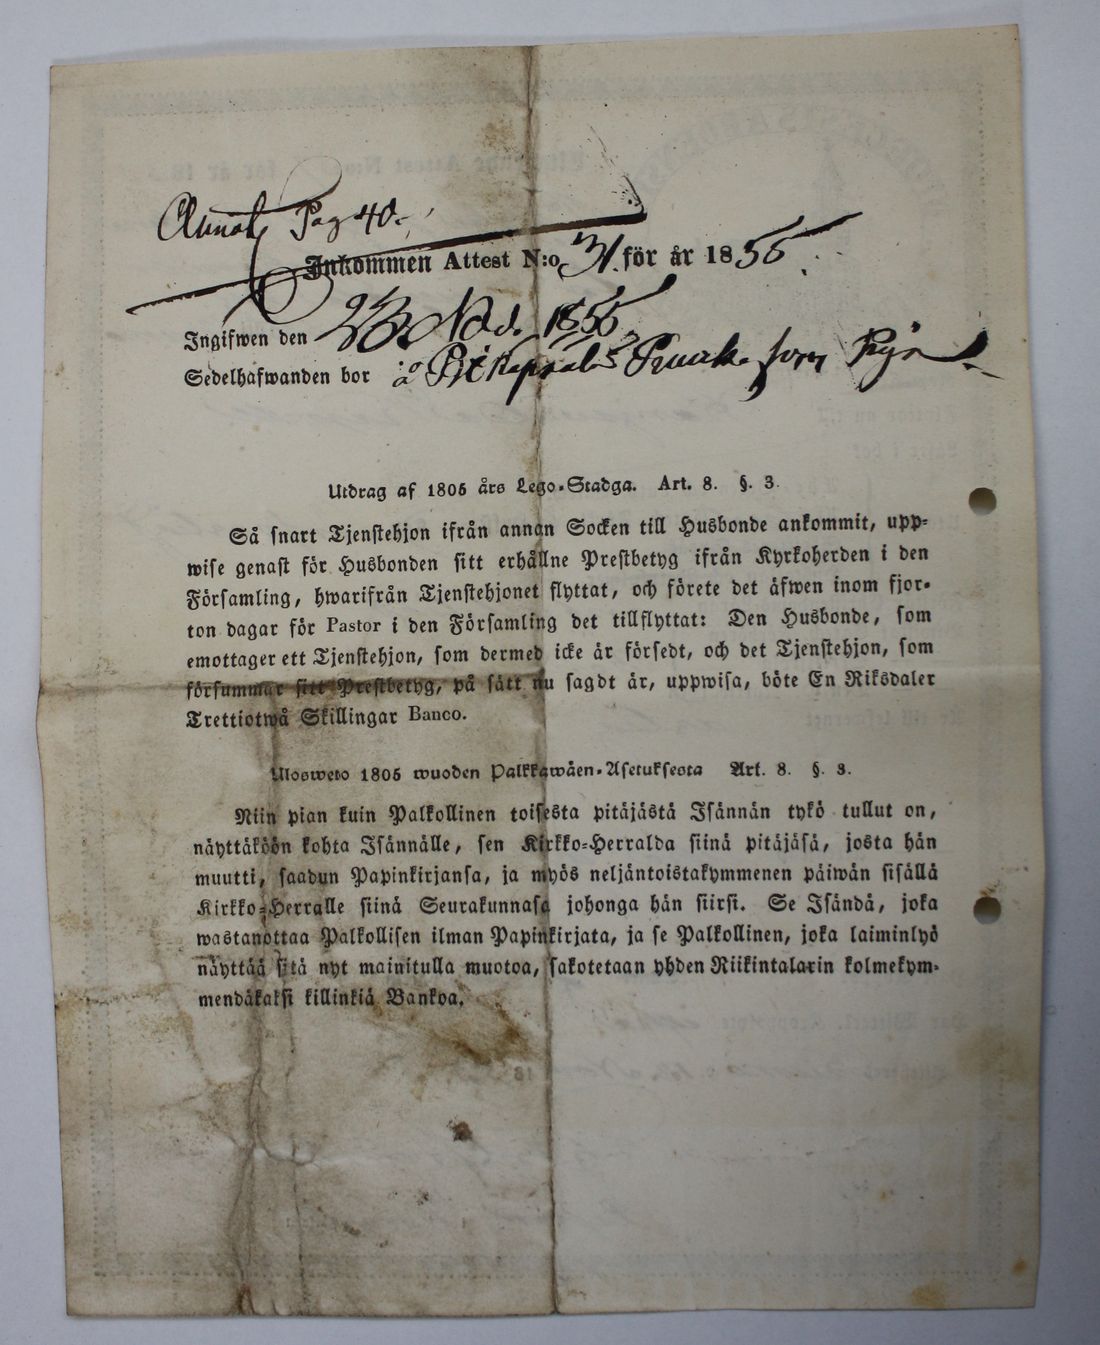 Pag 40.
Inkommen Attest N:o 31. för år 1855.
Ingifwen den 23 Nov. 1855
Sedelhafwanden bor å som Piga
Utdrag af 1805 års Lego-Stadga. Art. 8. §. 3.
Så snart Tjenstehjon ifrån annan Socken till Husbonde ankommit, upp-
wise genast för Husbonden sitt erhållne Prestbetyg ifrån Kyrkoherden i den
Församling, hwarifrån Tjenstehjonet flyttat, och förete det äfwen inom fjor-
ton dagar för Pastor i den Församling det tillflyttat: Den Husbonde, som
emottager ett Tjenstehjon, som dermed icke är försedt, och det Tjenstehjon, som
försummar sitt Prestbetyg, på sätt nu sagdt är, uppwisa, böte En Riksdaler
Trettiotwå Skillingar Banco.
Ulosweto 1805 wuoden Palkkawäen-Asetuksesta Art. 8. §. 3.
Niin pian kuin Palkollinen toisesta pitäjästä Isännän tykö tullut on,
näyttäköön kohta Isännälle, sen Kirkko-Herralda siinä pitäjäsä, josta hän
muutti, saadun Papinkirjansa, ja myös neljäntoistakymmenen päiwän sisällä
Kirkko-Herralle siinä Seurakunnasa johonga hän siirsi. Se Isändä, joka
wastanottaa Palkollisen ilman Papinkirjata, ja se Palkollinen, joka laiminlyö
näyttää sitä nyt mainitulla muotoa, sakotetaan yhden Riikintalarin kolmekym-
mendäkaksi killinkiä Bankoa.